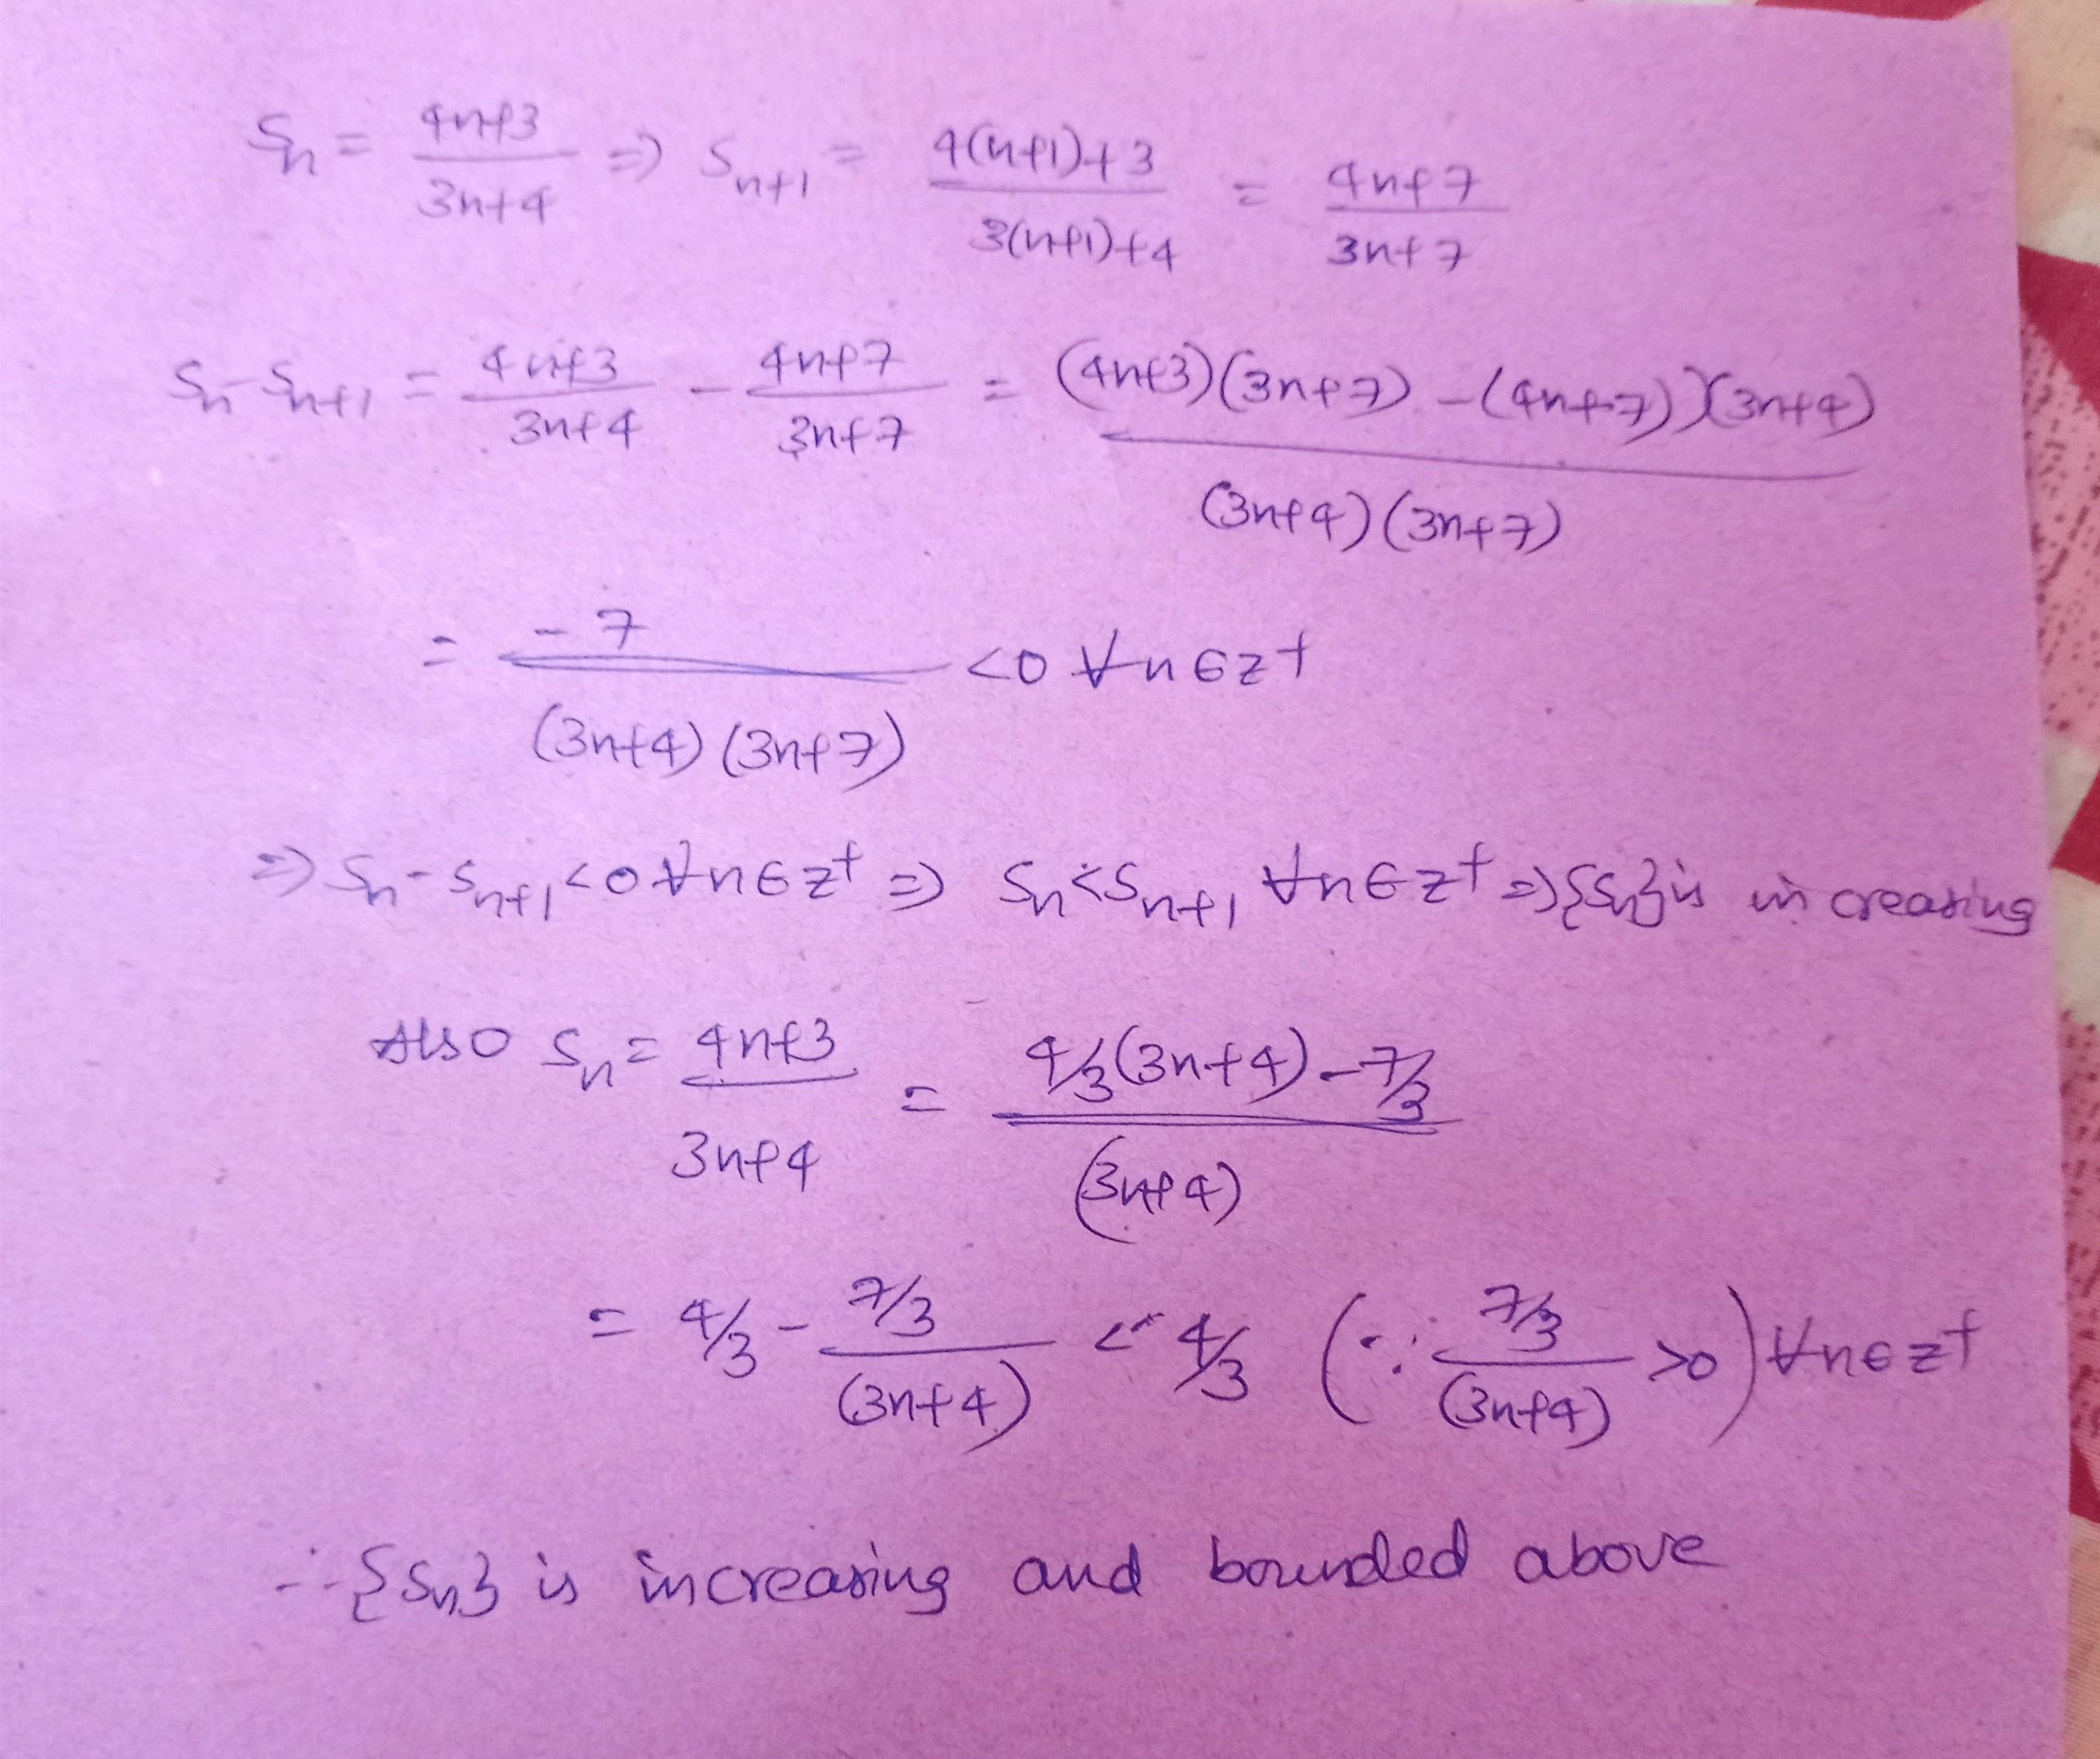 Sn = (4n+3)/(3n+4) => Sn+1 = (4(n+1)+3)/(3(n+1)+4) = (4n+7)/(3n+7)
Sn - Sn+1 = (4n+3)/(3n+4) - (4n+7)/(3n+7) = ((4n+3)(3n+7) - (4n+7))(3n+4))/((3n+4)(3n+7))
= -7/((3n+4)(3n+7)) <0 ∀n∈z+
=> Sn - Sn+1 <0 ∀n∈z+ => Sn<Sn+1 ∀n∈z+ => {Sn} is increasing
Also Sn = (4n+3)/(3n+4) = (4/3(3n+4) - 7/3)/(3n+4)
= 4/3 - (7/3)/(3n+4) < 4/3 (∵ (7/3)/(3n+4) >0) ∀n∈z+
∴ {Sn} is increasing and bounded above